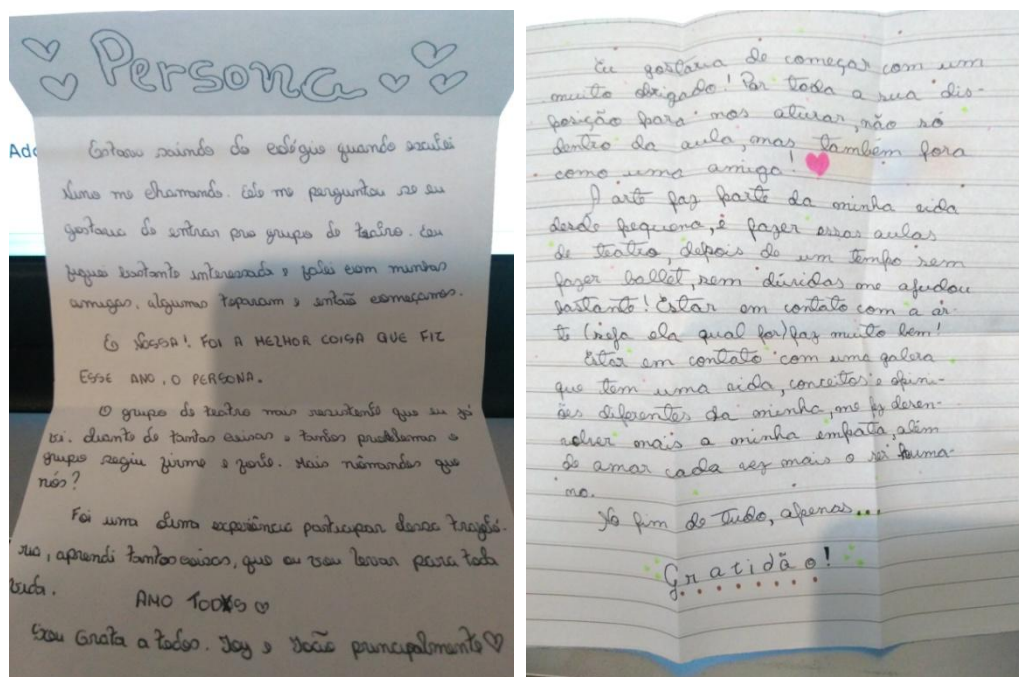 Persona
Estava saindo do colégio quando escutei
Nuno me chamando. Ele me perguntou se eu
gostaria de entrar pro grupo de teatro. Eu
fiquei bastante interessada e falei com minhas
amigas, algumas toparam e então começamos.
E NOSSA! FOI A MELHOR COISA QUE FIZ
ESSE ANO, O PERSONA.
O grupo de teatro mais resistente que eu já
vi. Diante de tantas coisas e tantos problemas o
grupo seguiu firme e forte. Mais nômandes que
nós?
Foi uma experiência participar dessa trajetó-
ria, aprendi tantas coisas, que eu vou levar para toda
vida.
AMO TODXS
Sou Grata a todos. Joy e João principalmente
Adc
Eu gostaria de começar com um
muito obrigado! Por toda a sua dis-
posição para nos aturar, não só
dentro da aula, mas também fora
como uma amiga!
A arte faz parte da minha vida
desde pequena, e fazer essas aulas
de teatro, depois de um tempo sem
fazer ballet, sem dúvidas me ajudou
bastante! Estar em contato com a ar-
te (seja ela qual for) faz muito bem!
Estar em contato com uma galera
que tem uma vida, conceitos e opini-
ões diferentes da minha, me fez desen-
volver mais a minha empatia, além
de amar cada vez mais o ser huma-
no.
No fim de tudo, apenas...
Gratidão!